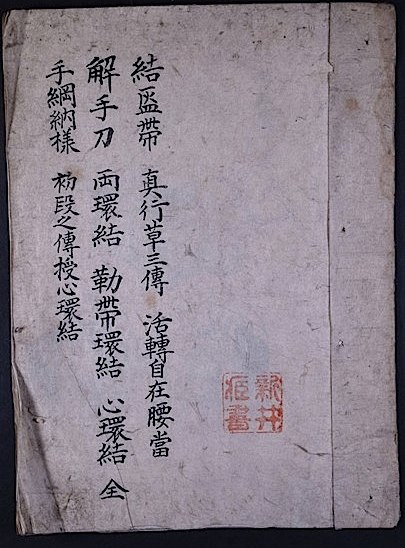 結盔帯 真行草三傳 活轉自在腰當
解手刀 両環結 勒帯環結 心環結 全
手綱納様 初段之傳授心環結
新井
書